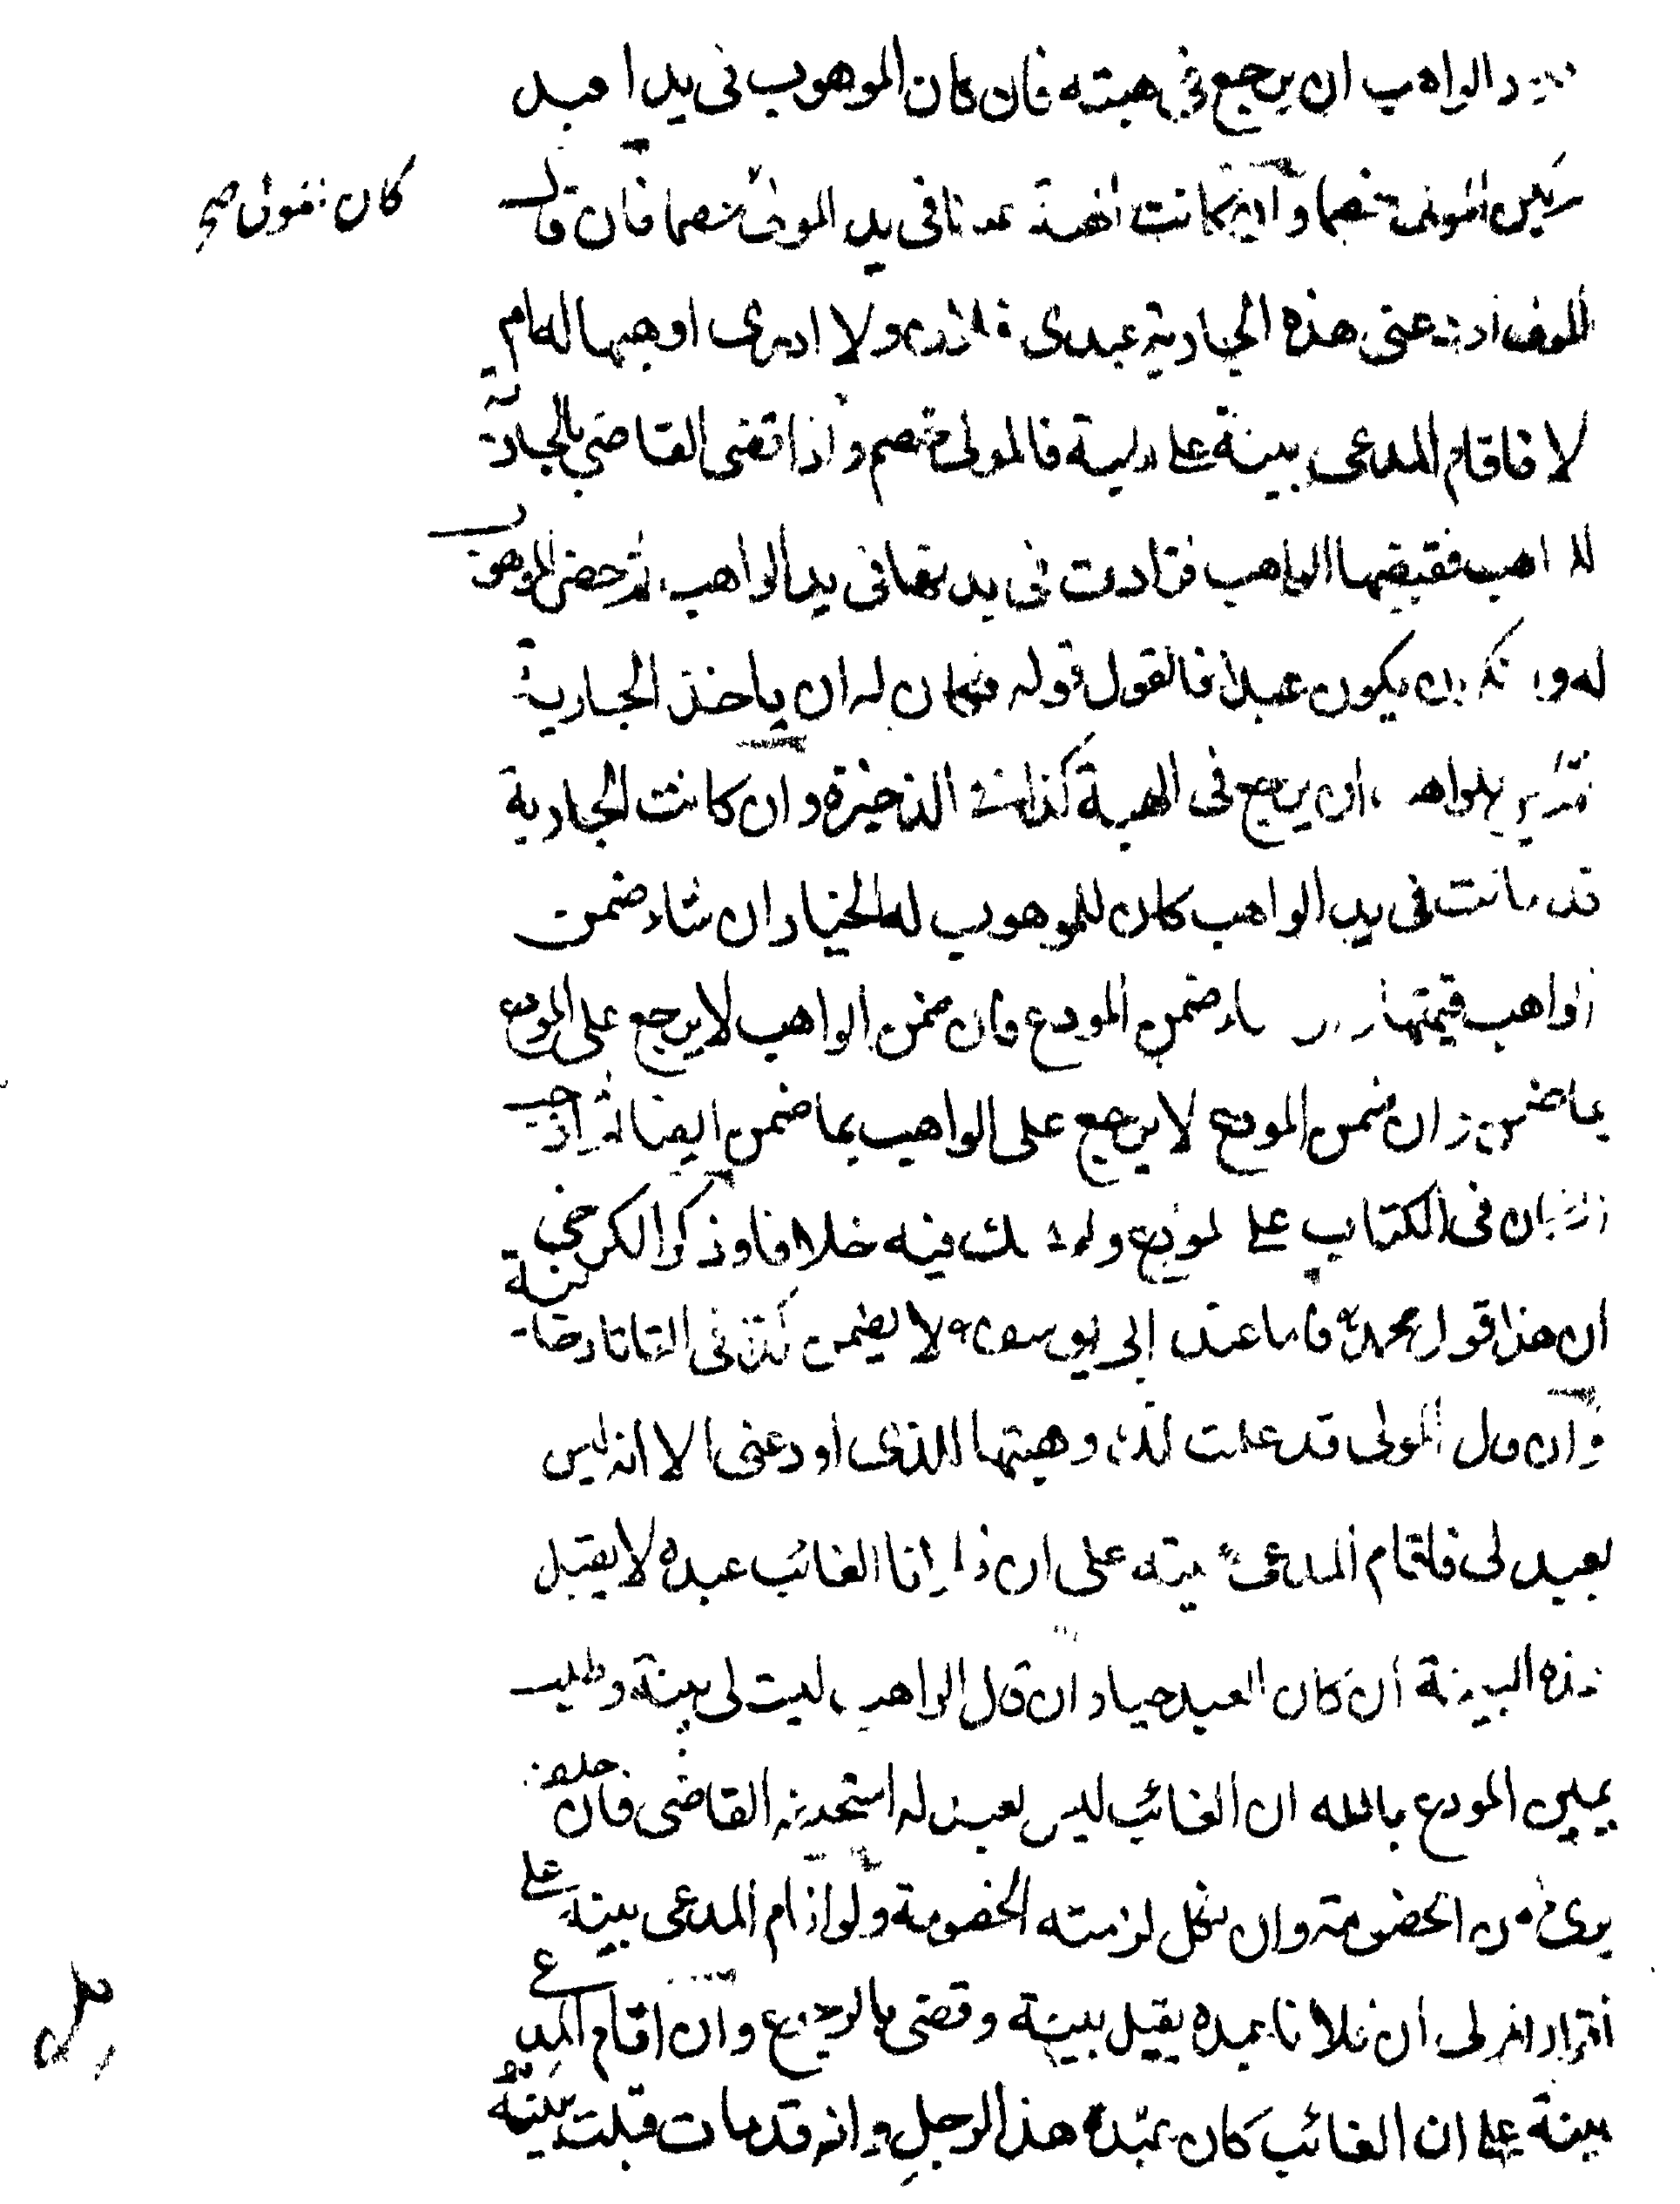 الواهب ان يرجع فى هبته فان كان الموهوب فى يد العبد
المولى خصما وان كانت الهبة عندنا فى يد المولى خصما فان قال
كان المولى صح
المولى اودعنى هذه الجارية عبدى فلان ولا ادرى اوهبها له ام
لا فاقام المدعى بينة على الهبة فالمولى خصم واذا قضى القاضى بالجارية
للواهب فقبضها الواهب فزادت فى بدنها فى يد الواهب ثم حضر الموهوب
له وانكر ان يكون عبدا فالقول قوله فكان له ان ياخذ الجارية
ثم للواهب ان يرجع فى الهبة كذا فى الذخيرة وان كانت الجارية
قد ماتت فى يد الواهب كان للموهوب له الخيار ان شاء ضمن
الواهب قيمتها وان شاء ضمن المودع فان ضمن الواهب لا يرجع على المودع
بما ضمن وان ضمن المودع لا يرجع على الواهب بما ضمن ايضا ثم اوجب
الضمان فى الكتاب على المودع ولم يحك فيه خلافا وذكر الكرخى
ان هذا قول محمد فاما عند ابى يوسف لا يضمن كذا فى التاتارخانية
وان قال المولى قد علمت انك وهبتها للذى اودعنى الا انه ليس
بعبد لى فاقام المدعى بينته على ان فلانا الغائب عبده لا يقبل
هذه البينة ان كان العبد حيا وان قال الواهب ليست لى بينة وطلب
يمين المودع بالله ان الغائب ليس بعبد له استحلفه القاضى فان حلف
برئ من الخصومة وان نكل لزمته الخصومة ولو اقام المدعى بينة على
اقرار المولى ان فلانا عبده يقبل بينته وقضى بالرجوع وان اقام المدعى
بينة على ان الغائب كان عبده هذا الرجل وانه قد مات قبلت بينته